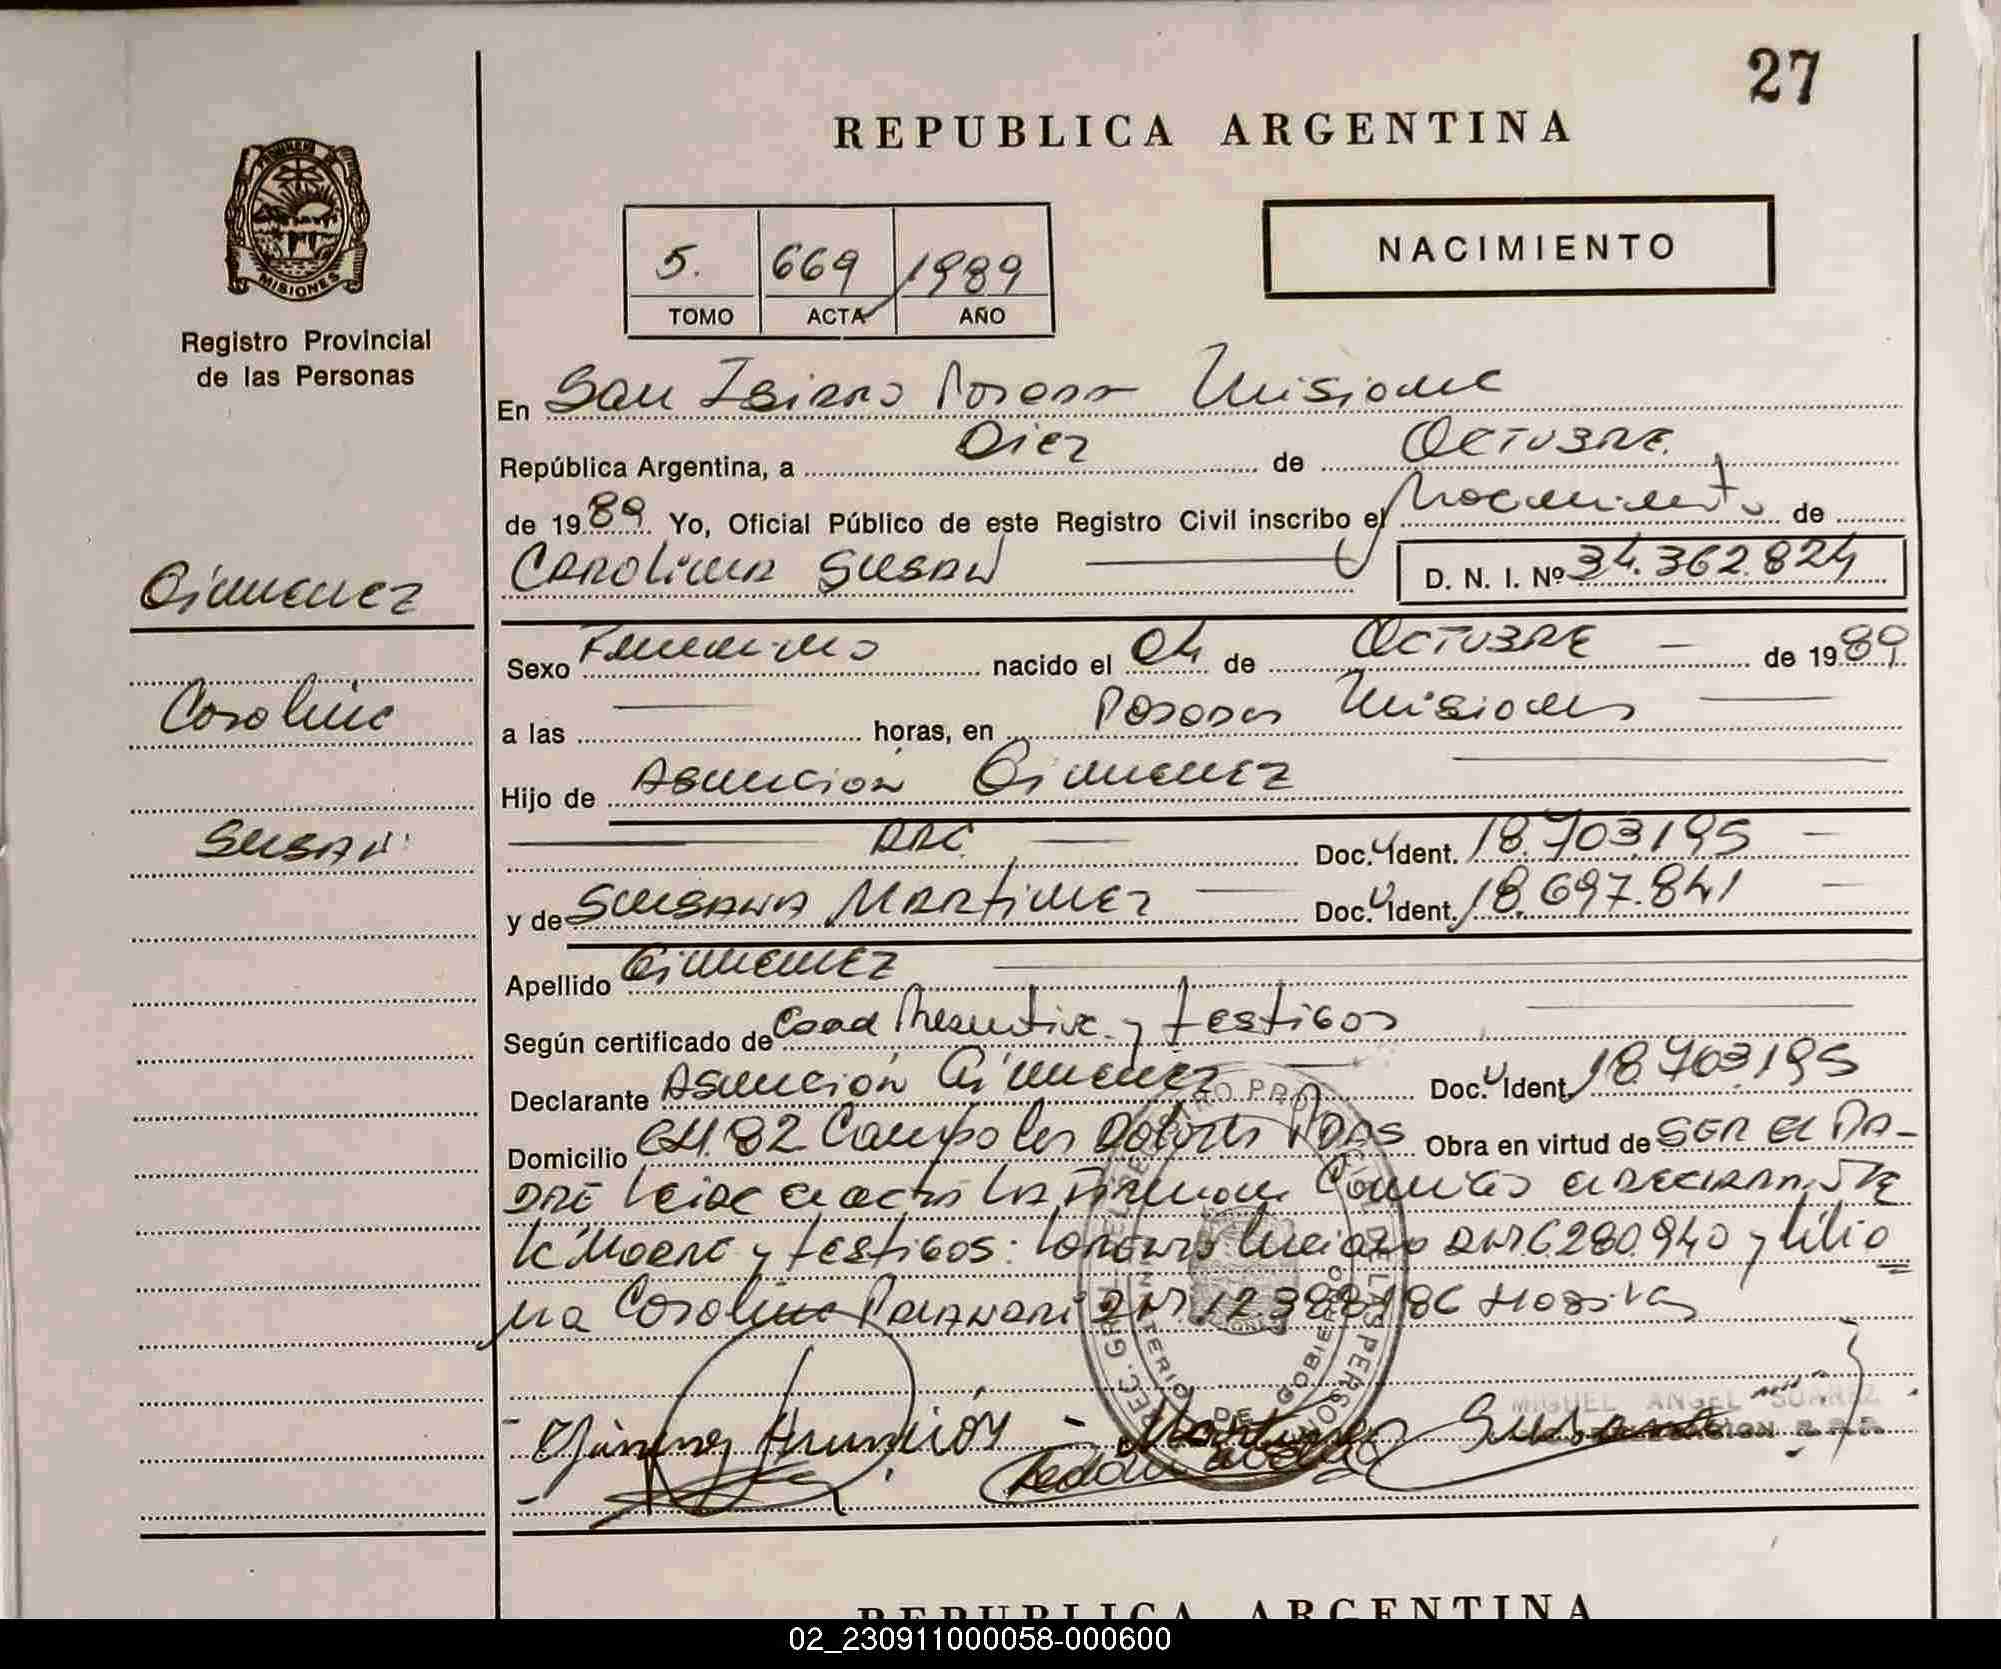 27
REPUBLICA ARGENTINA
MISIONES
Registro Provincial
de las Personas
5. 669 1989
TOMO ACTA AÑO
NACIMIENTO
En San Isidro Posadas Misiones
República Argentina, a Diez de OCTUBRE.
de 1989. Yo, Oficial Público de este Registro Civil inscribo el Nacimiento de
CAROLINA SUSAN
D. N. I. Nº 34.362.824
Gimenez
Carolina
SUSAN
Sexo Femenino nacido el 04 de OCTUBRE de 1989
a las horas, en Posadas Misiones
Hijo de ASUNCIÓN GIMENEZ
ARG. Doc. Ident. 18.703.195
y de SUSANA MARTINEZ Doc. Ident. 18.697.841
Apellido GIMENEZ
Según certificado de y testigos
Declarante ASUNCIÓN GIMENEZ Doc. Ident. 18.703.195
Domicilio CH. 82 PDAS Obra en virtud de SER EL PA-
DRE el acta la firman el DECLARANTE
la Madre y testigos: LORENZO Luciano DNI 6280.940 y Lilia
na Carolina DNI.
REGISTRO PROVINCIAL DE LAS PERSONAS
MINISTERIO DE GOBIERNO
Gimenez Asunción - Martinez Susana
MIGUEL ANGEL SUAREZ
REPUBLICA ARGENTINA
02_230911000058-000600